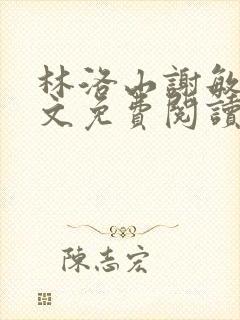 林洛山謝敏
文免費閱讀
陳志宏